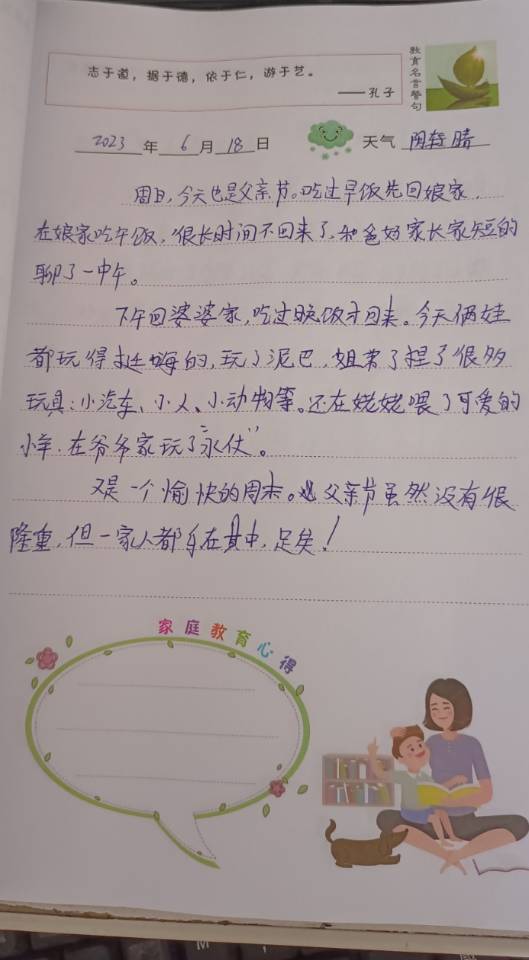 志于道，据于德，依于仁，游于艺。
——孔子
教育名言警句
2023 年 6 月 18 日 天气 阴转晴
周日，今天也是父亲节。吃过早饭先回娘家，
在娘家吃午饭，很长时间不回来了，和爸妈家长家短的
聊了一中午。
下午回婆婆家，吃过晚饭才回来。今天俩娃
都玩得挺嗨的，玩了泥巴，姐弟了捏了很多
玩具：小汽车、小人、小动物等。还在姥姥喂了可爱的
小羊，在爷爷家玩了“水仗”。
又是一个愉快的周末。父亲节虽然没有很
隆重，但一家人都乐在其中，足矣！
家庭教育心得